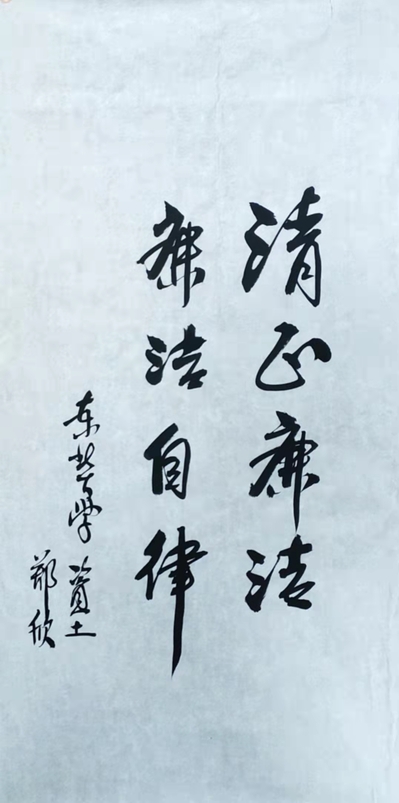 清正廉洁
廉洁自律
东北大学 资土
郑欣